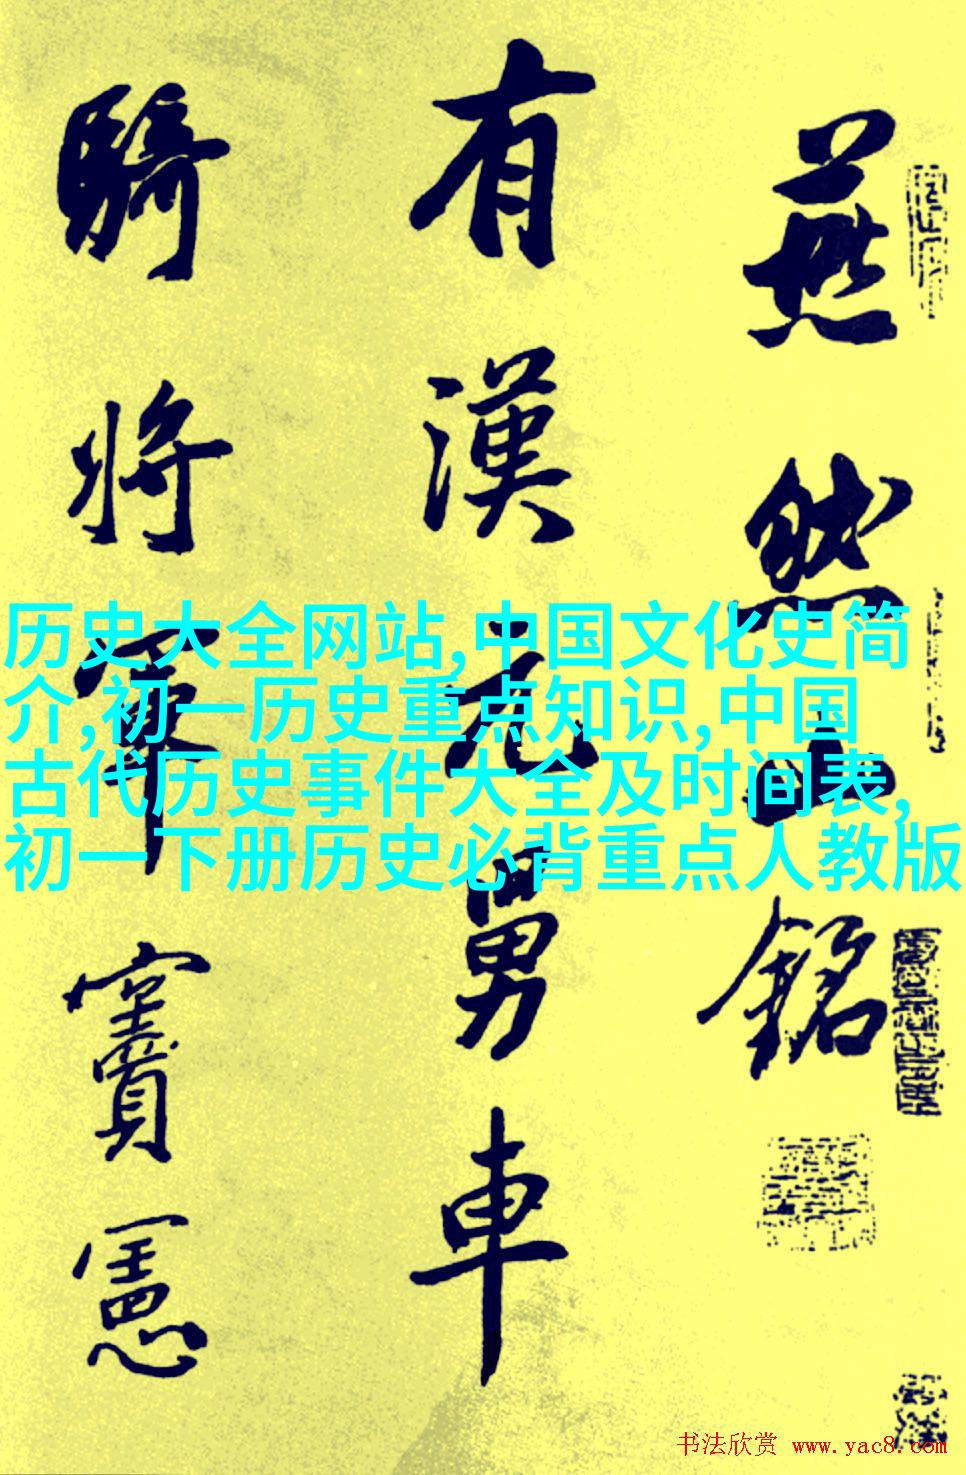 燕然山銘
有漢元舅車
騎將軍竇憲
历史大全网站,中国文化史简
介,初一历史重点知识,中国
古代历史事件大全及时间表,
初一下册历史必背重点人教版
书法欣赏 www.yac8.com